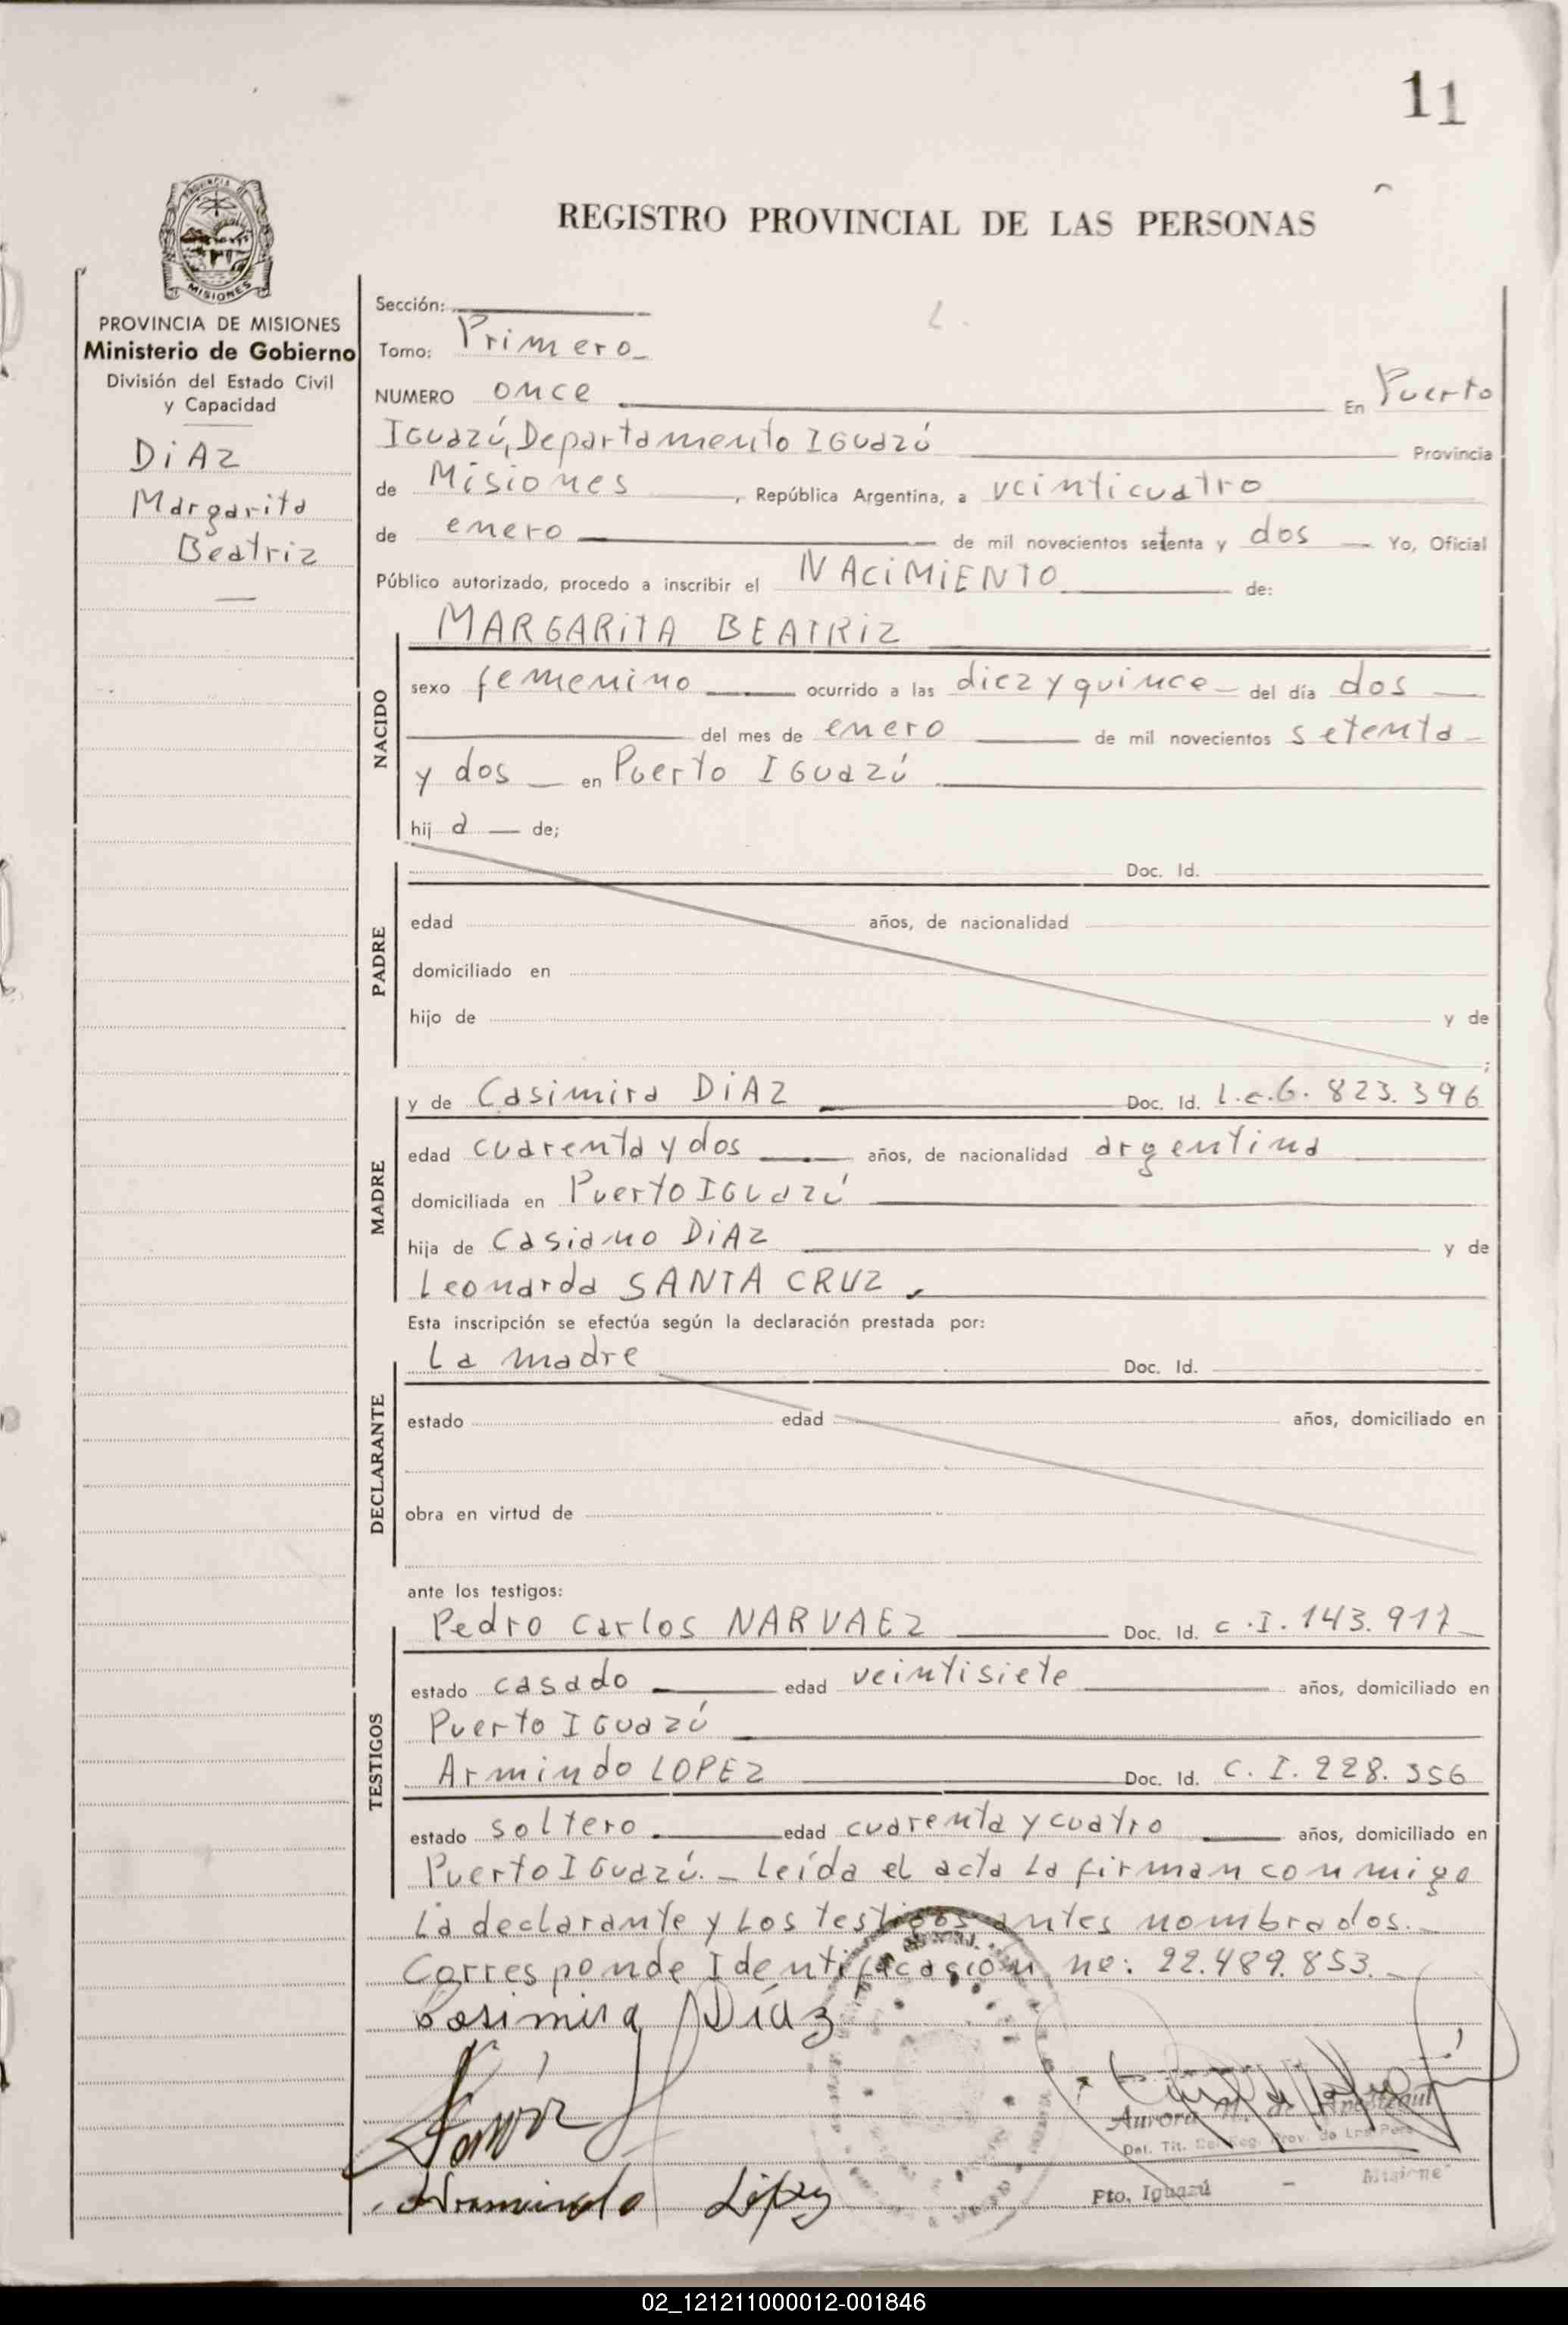 11
PROVINCIA DE
MISIONES
REGISTRO PROVINCIAL DE LAS PERSONAS
PROVINCIA DE MISIONES
Ministerio de Gobierno
División del Estado Civil
y Capacidad
DiAZ
Margarita
Beatriz
Sección:
Tomo: Primero
NUMERO once En Puerto
IGuazú, Departamento IGuazú Provincia
de Misiones, República Argentina, a veinticuatro
de enero de mil novecientos setenta y dos Yo, Oficial
Público autorizado, procedo a inscribir el NACiMiENTO de:
NACIDO
MARGARiTA BEATRiZ
sexo femenino ocurrido a las diez y quince del día dos
del mes de enero de mil novecientos setenta
y dos en Puerto IGuazú
hij a de;
PADRE
Doc. Id.
edad años, de nacionalidad
domiciliado en
hijo de y de
;
MADRE
y de Casimira DiAZ Doc. Id. L.c.6.823.396
edad cuarenta y dos años, de nacionalidad argentina
domiciliada en Puerto IGuazú
hija de Casiano DiAZ y de
Leonarda SANTA CRUZ.
Esta inscripción se efectúa según la declaración prestada por:
DECLARANTE
La madre Doc. Id.
estado edad años, domiciliado en
obra en virtud de
ante los testigos:
TESTIGOS
Pedro Carlos NARVAEZ Doc. Id. C.I. 143.917
estado casado edad veintisiete años, domiciliado en
Puerto IGuazú
Armindo LOPEZ Doc. Id. C.I. 228.356
estado soltero edad cuarenta y cuatro años, domiciliado en
Puerto IGuazú.- Leída el acta La firman conmigo
La declarante y Los testigos antes nombrados.-
Corresponde Identificación no: 22.489.853.-
Casimira Díaz
Aurora
Del. Tit. Del Reg. Prov. de Las Pers
Pto. Iguazú - Misiones
Armindo López
02_121211000012-001846